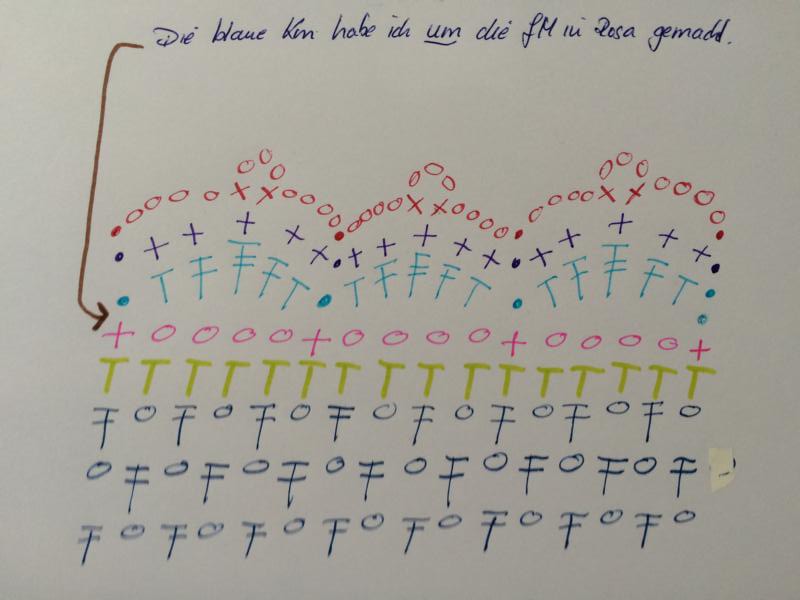 Die blaue Km habe ich um die fM in Rosa gemacht.